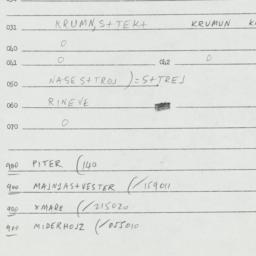 031 KRUMN, S+TEK+ KRUMUN
040 0
041 0 042 0
050 NASES+TROJ ) = S+TREJ
060 RINEVE
070 0
900 PITER (140
900 MAJNJAS+VESTER (/159011
900 XMARE (/215020
900 MIDERHOJZ (/055010